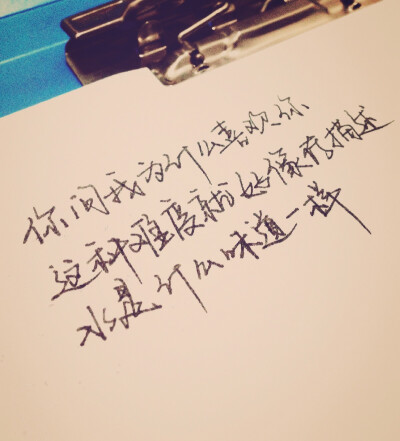 你问我为什么喜欢你
这种难度就好像在描述
水是什么味道一样